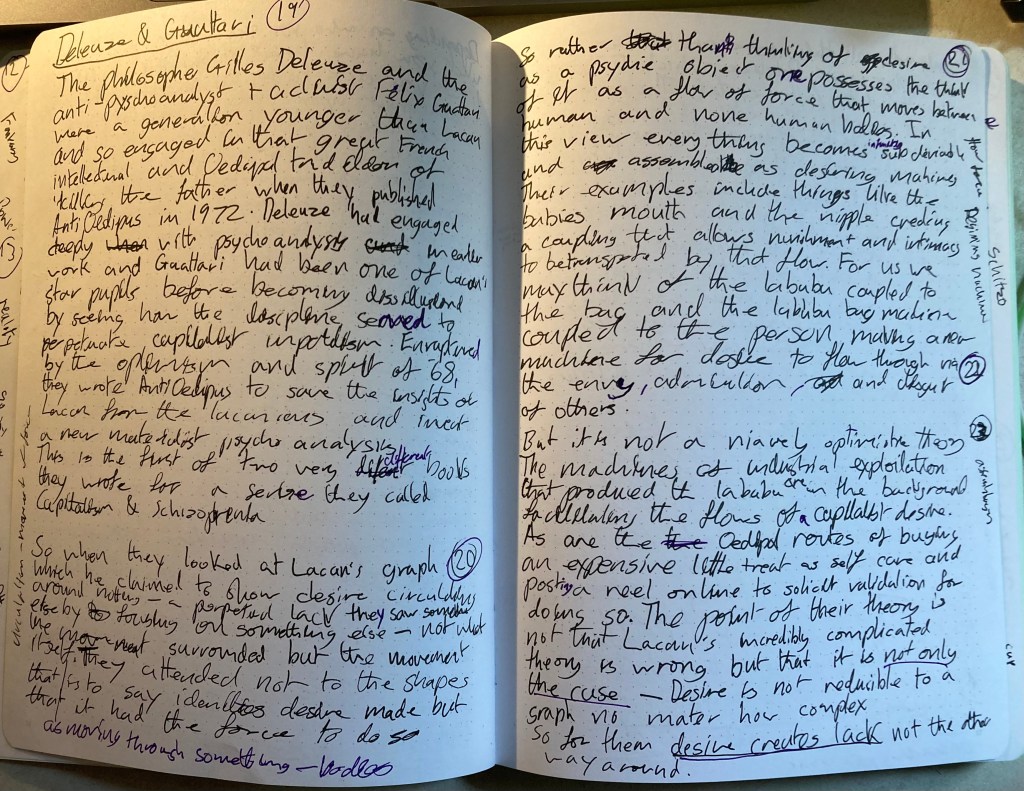 Deleuze & Guattari (19)
The philosopher Gilles Deleuze and the
anti-pyschoanalyst + activist Félix Guattari
were a generation younger than Lacan
and so engaged in that great French
intellectual and Oedipal tradition of
killing the father when they published
AntiOedipus in 1972. Deleuze had engaged
deeply with psychoanalysis in earlier
work and Guattari had been one of Lacan's
star pupils before becoming dissillusioned
by seeing how the discipline served to
perpetuate capitalist impotism. Enraptured
by the optimism and spirit of '68,
they wrote AntiOedipus to save the insights of
Lacan from the lacanians and invent
a new materialist psycho analysis
This is the first of two very different books
they wrote for a serise they called
Capitalism & Schizoprenia
So when they looked at Lacan's graph (20)
which he claimed to show desire circulating
around nothing - a perpetual lack they saw something
else by focusing on something else - not what
the movement surrounded but the movement
itself. They attended not to the shapes
that is to say identities desire made but
that it had the force to do so
as moving through something - bodies
So rather than thinking of desire (21)
as a psychic object one possesses the think
of it as a flow of force that moves between
human and none human bodies. In
this view everything becomes infinitly subdeviable
and assembleable as desiring mahines
Their examples include things like the
babies mouth and the nipple creating
a coupling that allows nurishment and intimacy
to be transported by that flow. For us we
may think of the labubu coupled to
the bag and the labubu bag machine
coupled to the person making a new
machine for desire to flow through via (22)
the envy, admiration, and disgust
of others.
But it is not a niavely optimistic theory
The machines of industrial exploitation
that produced the lababu are in the background
facilitating the flows of a capitalist desire.
As are the Oedipal routes of buying
an expensive little treat as self care and
posting a reel online to solicit validation for
doing so. The point of their theory is
not that Lacan's incredibly complicated
theory is wrong but that it is not only
the case - Desire is not reducible to a
graph no mater how complex
So for them desire creates lack not the other
way around.
(12)
(13)
Desiring machines
Schizo
cut